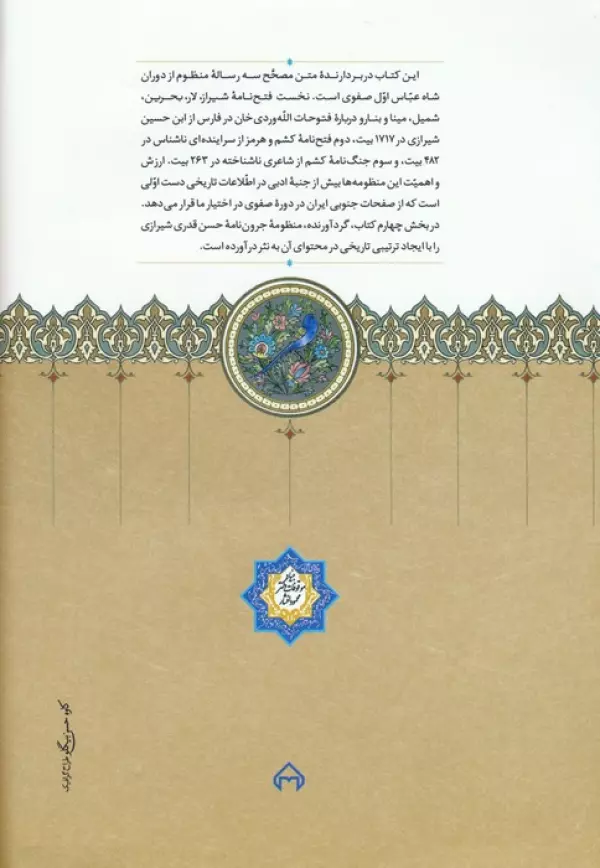 این کتاب دربردارندهٔ متن مصحَّح سه رسالهٔ منظوم از دوران
شاه عبّاس اوّل صفوی است. نخست فتح‌نامهٔ شیراز، لار، بحرین،
شمیل، مینا و بنارو دربارهٔ فتوحات اللّه‌وردی‌خان در فارس از ابن حسین
شیرازی در ۱۷۱۷ بیت، دوم فتح‌نامهٔ کشم و هرمز از سراینده‌ای ناشناس در
۴۸۲ بیت، و سوم جنگ‌نامهٔ کشم از شاعری ناشناخته در ۲۶۳ بیت. ارزش
و اهمیّت این منظومه‌ها بیش از جنبهٔ ادبی در اطّلاعات تاریخی دست اوّلی
است که از صفحات جنوبی ایران در دورهٔ صفوی در اختیار ما قرار می‌دهد.
در بخش چهارم کتاب، گردآورنده، منظومهٔ جرون‌نامهٔ حسن قدری شیرازی
را با ایجاد ترتیبی تاریخی در محتوای آن به نثر درآورده است.
بنیاد
موقوفات دکتر
محمود افشار
طراح گرافیک